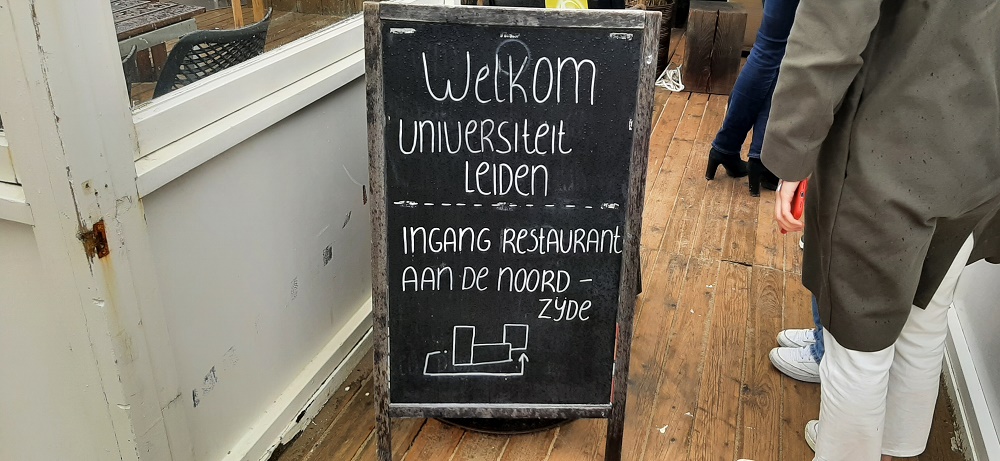 Welkom
UNIVERSITEIT
LEIDEN
INGANG RESTAURANT
AAN DE NOORD -
ZYDE